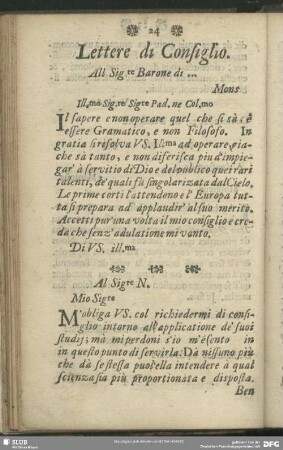 24
Lettere di Consiglio.
All Sig.re Barone di ...
Mons
Ill.mo Sig.re/ Sig.re Pad. ne Col.mo
Il sapere e non operare quel che si sà: è
essere Gramatico, e non Filosofo. In
gratia si resolva VS. Ill.ma ad operare, gia-
che sà tanto, e non diferisca piu d'impie-
gar' à servitio di Dio e del publico quei rari
talenti, de' quali fù singolarizata dal Cielo.
Le prime corti l'attendono e l' Europa tut-
ta si prepara ad applaudir' al suo merito.
Accetti pur' una volta il mio consiglio e cre-
da che senz' adulatione mi vonto.
Di VS. ill.ma
Al Sig.re N.
Mio Sig.re
M'obliga VS. col richiedermi di consi-
glio intorno all' applicatione de' suoi
studij; ma mi perdoni s'io m'esento in
in questo punto di servirla. Dà nissuno più
che dà se stessa puol ella intendere a qual
scienza sia più proportionata e disposta.
Ben
SLUB
DFG